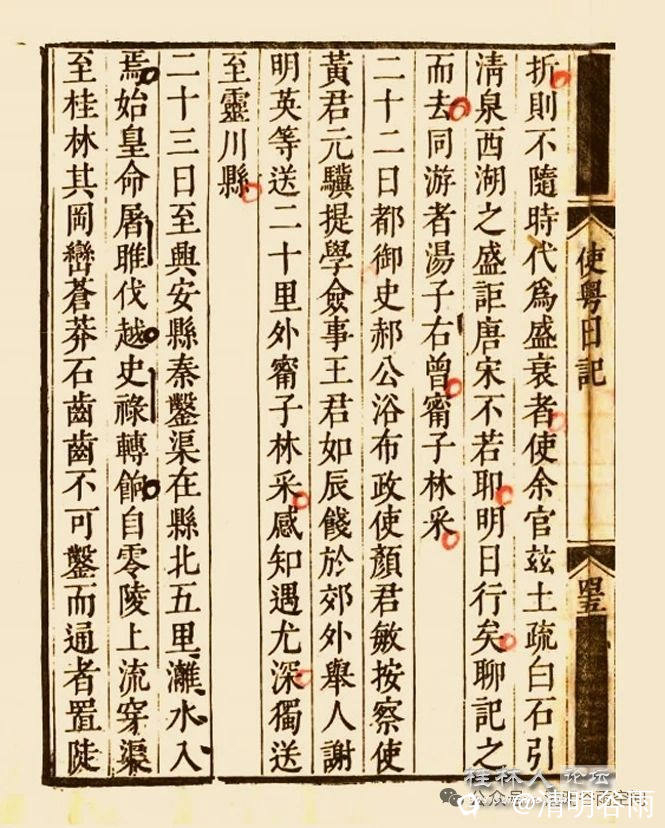 使粤日記
折則不隨時代爲盛衰者使余官茲土疏白石引
淸泉西湖之盛詎唐宋不若耶明日行矣聊記之
而去同游者湯子右曾甯子林采
二十二日都御史郝公浴布政使顏君敏按察使
黃君元驥提學僉事王君如辰餞於郊外舉人謝
明英等送二十里外甯子林采感知遇尤深獨送
至靈川縣
二十三日至興安縣秦鑿渠在縣北五里灕水入
焉始皇命屠睢伐越史祿轉餉自零陵上流穿渠
至桂林其岡巒蒼莽石齒齒不可鑿而通者置陡
桂林人论坛
公众号
@清明谷雨